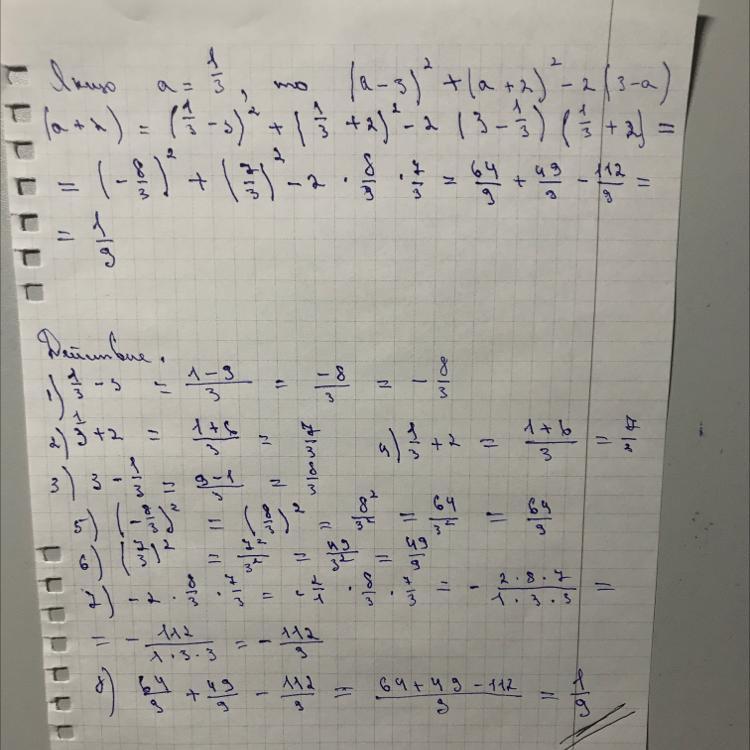 Якщо a = 1/3, то (a-3)² + (a+2)² - 2 (3-a)
(a+2) = (1/3 - 3)² + (1/3 + 2)² - 2 (3 - 1/3) (1/3 + 2) =
= (-8/3)² + (7/3)² - 2 · 8/3 · 7/3 = 64/9 + 49/9 - 112/9 =
= 1/9
Действие.
1) 1/3 - 3 = (1-9)/3 = -8/3 = -8/3
2) 1/3 + 2 = (1+6)/3 = 7/3 4) 1/3 + 2 = (1+6)/3 = 7/3
3) 3 - 1/3 = (9-1)/3 = 8/3
5) (-8/3)² = (8/3)² = 8²/3² = 64/3² = 64/9
6) (7/3)² = 7²/3² = 49/3² = 49/9
7) -2 · 8/3 · 7/3 = -2/1 · 8/3 · 7/3 = - (2·8·7)/(1·3·3) =
= - 112/(1·3·3) = - 112/9
8) 64/9 + 49/9 - 112/9 = (64+49-112)/9 = 1/9